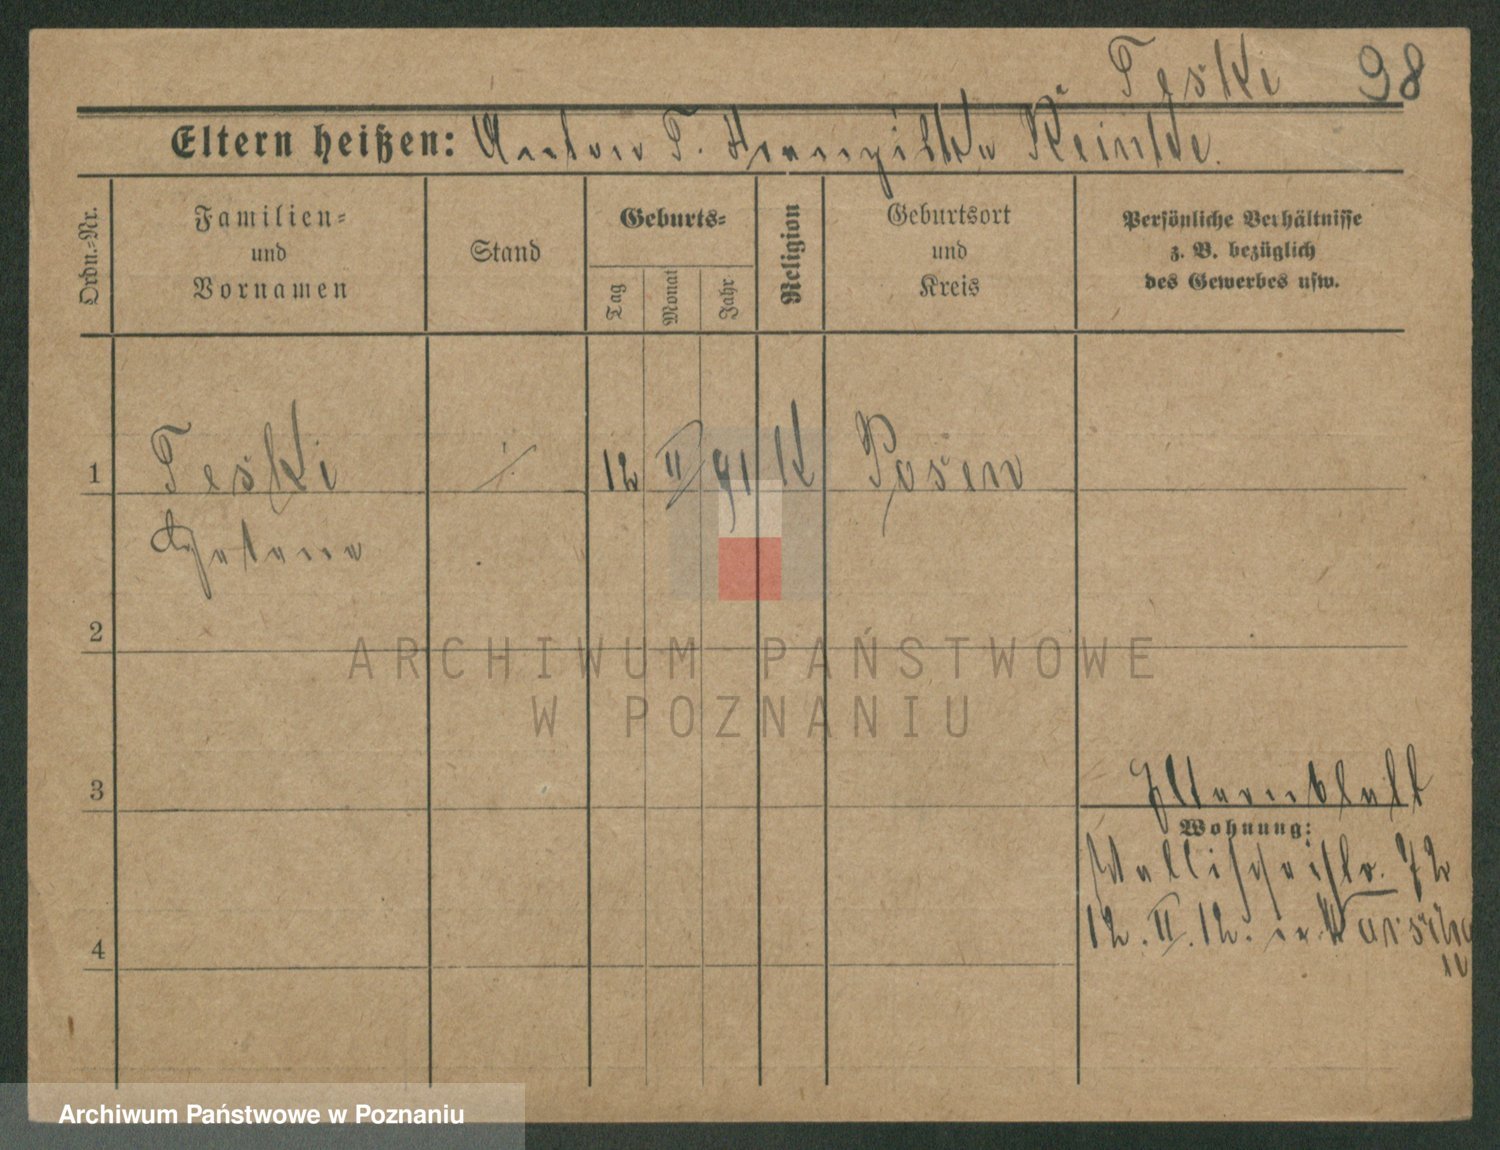 Teski 98
Eltern heißen: Anton T. Franziska Reinke.
Ordn.-Nr.
Familien-
und
Vornamen
Stand
Geburts-
Tag
Monat
Jahr
Religion
Geburtsort
und
Kreis
Persönliche Verhältnisse
z. B. bezüglich
des Gewerbes usw.
1 Teski ⁒ 12 II 91 K Posen
2
3
Elternblatt
Wohnung:
Wallischeistr. 72
12. II. 12.
4
ARCHIWUM PAŃSTWOWE
W POZNANIU
Archiwum Państwowe w Poznaniu